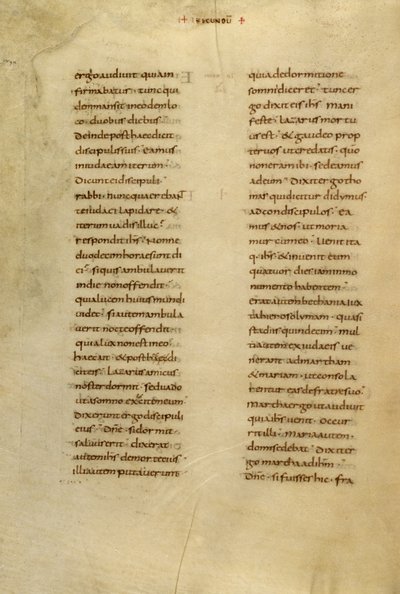 + SECUNDŪ +
ergo audiunt quia in
firmabatur · tunc qui
dem mansit in eodem lo
co · duobus diebus ·
Deinde post haec dicit
discipulis suis · Eamus
in iudaeam iterum ·
Dicunt ei discipuli
rabbi · nunc quaerebant
te iudaei lapidare · &
iterum uadis illuc ·
respondit ihs · Nonne
duodecim horae sunt di
ei · si quis ambulauerit
in die non offendit ·
quia lucem huius mundi
uidet · si autem ambula
uerit nocte offendit
quia lux non est in eo ·
haec ait · & post haec di
cit eis · Lazarus amicus
noster dormit · sed uado
ut a somno excitem eum
Dixerunt ergo discipuli
eius · Dne · si dormit ·
saluus erit · dixerat
autem ihs de morte eius
illi autem putauerunt
quia de dormitione
somni diceret · tunc er
go dixit eis ihs mani
feste · Lazarus mortu
us est · & gaudeo prop
ter uos ut credatis · quo
non eram ibi · sed eamus
ad eum · Dixit ergo tho
mas qui dicitur didymus
ad condiscipulos · Ea
mus & nos · ut moria
mur cum eo · Uenit ita
q · ihs · & inuenit eum
quattuor dies iam in mo
numento habentem ·
erat autem bethania iux
ta hierosolymam · quasi
stadiis quindecim · mul
ti autem ex iudaeis ue
nerant ad martham
& mariam · ut consola
rentur eas de fratre suo ·
martha ergo ut audiuit
quia ihs uenit · occur
rit illi · maria autem ·
domi sedebat · Dixit er
go martha ad ihm ·
Dne · si fuisses hic · fra